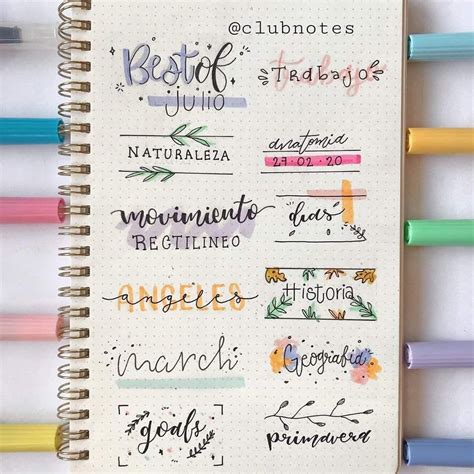 @clubnotes
Best of
julio
trabajo
Trabajo
NATURALEZA
anatomia
27·02·20
movimiento
RECTILINEO
dias
ANGELES
angeles
Historia
march
Geografia
goals
primavera